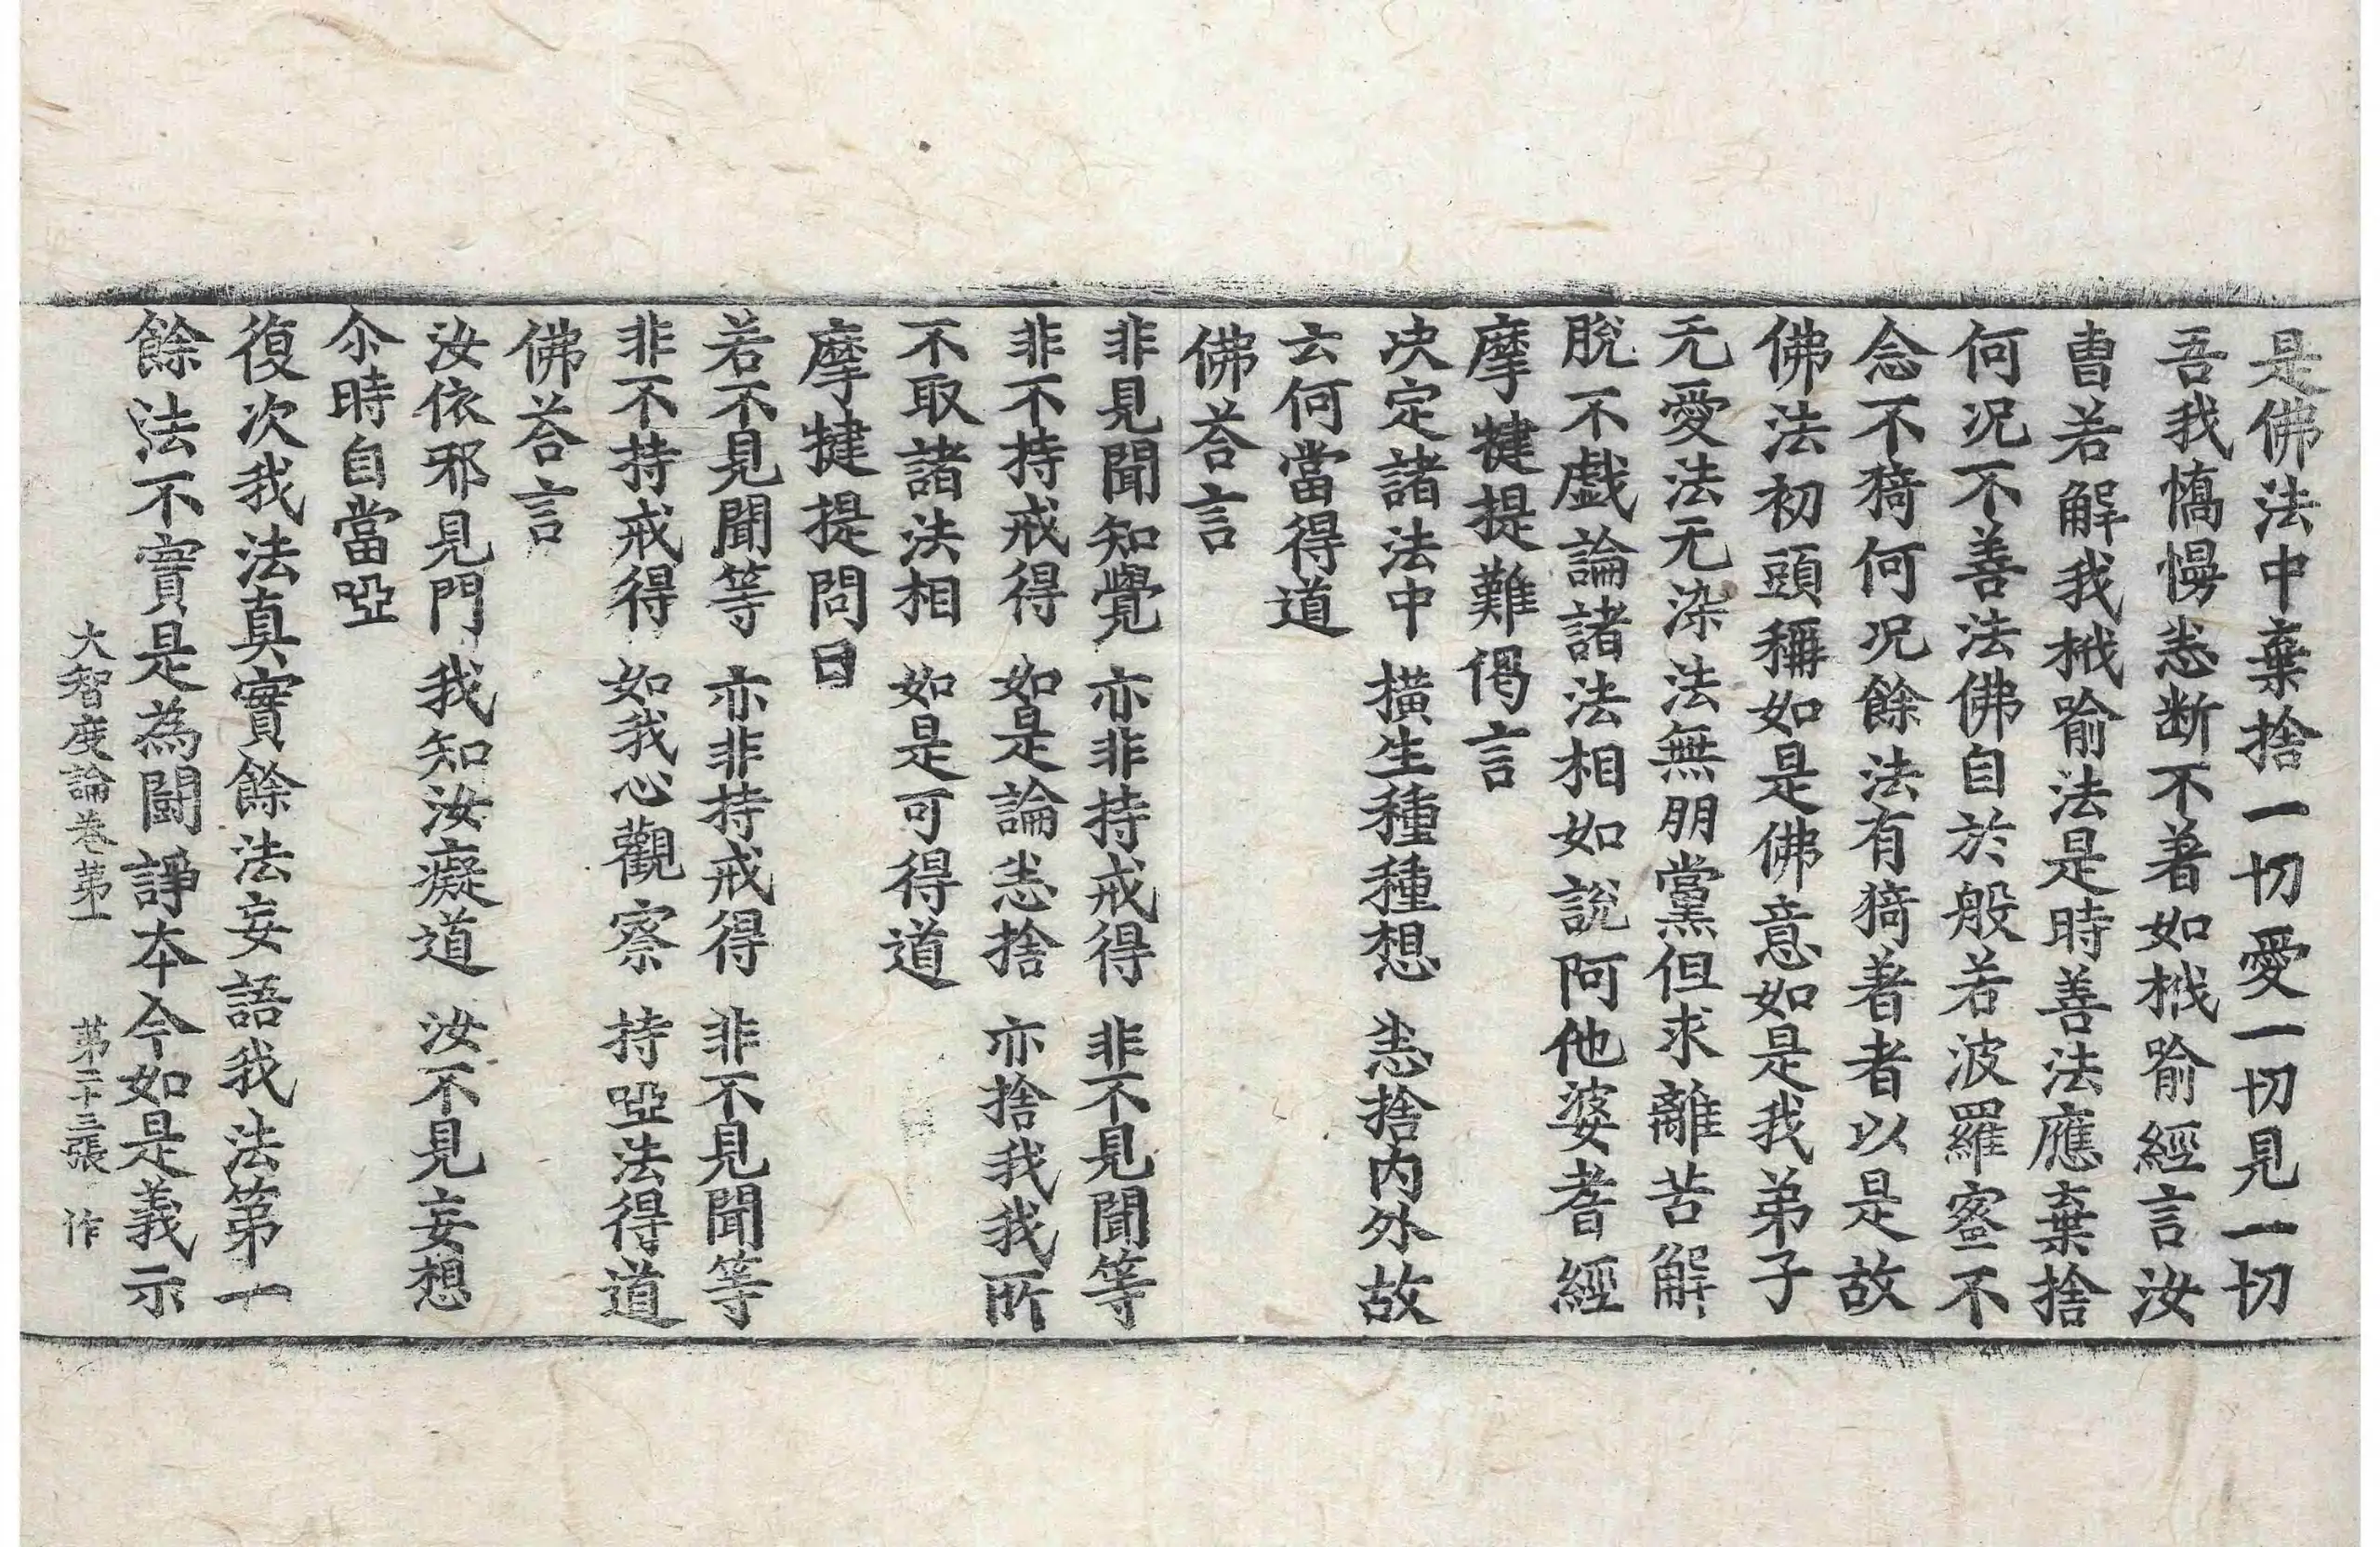 是佛法中棄捨一切愛一切見一切
吾我憍慢悉断不著如栰喻經言汝
曺若解我栰喻法是時善法應棄捨
何况不善法佛自於般若波羅蜜不
念不猗何况餘法有猗著者以是故
佛法初頭稱如是佛意如是我弟子
无愛法无染法無朋黨但求離苦解
脫不戲論諸法相如說阿他婆耆經
摩犍提難偈言
决定諸法中　橫生種種想　悉捨內外故
云何當得道
佛荅言
非見聞知覺　亦非持戒得　非不見聞等
非不持戒得　如是論悉捨　亦捨我我所
不取諸法相　如是可得道
摩犍提問曰
若不見聞等　亦非持戒得　非不見聞等
非不持戒得　如我心觀察　持啞法得道
佛荅言
汝依邪見門　我知汝癡道　汝不見妄想
尒時自當啞
復次我法真實餘法妄語我法第一
餘法不實是為鬪諍本今如是義示
大智度論卷第一　第二十三張　作